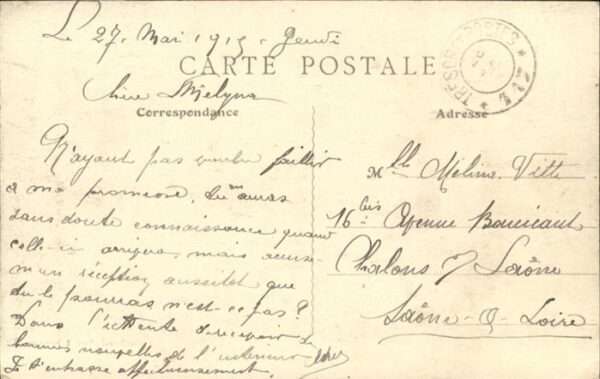 Le 27 Mai 1915. Jeudi
CARTE POSTALE
TRÉSOR ET POSTES
Chère Melyna
Correspondance
Adresse
N'ayant pas voulu faillir
à ma promesse, tu auras
sans doute connaissance quand
celle-ci arrivera mais accuse-
m'en réception aussitôt que
tu le pourras n'est-ce pas?
Dans l'attente de recevoir de
bonnes nouvelles de l'intérieur
Je t'embrasse affectueusement.
Mlle Melina Vitte
16 bis Avenue Boucicaut
Chalons s/ Saône
Saône-&-Loire